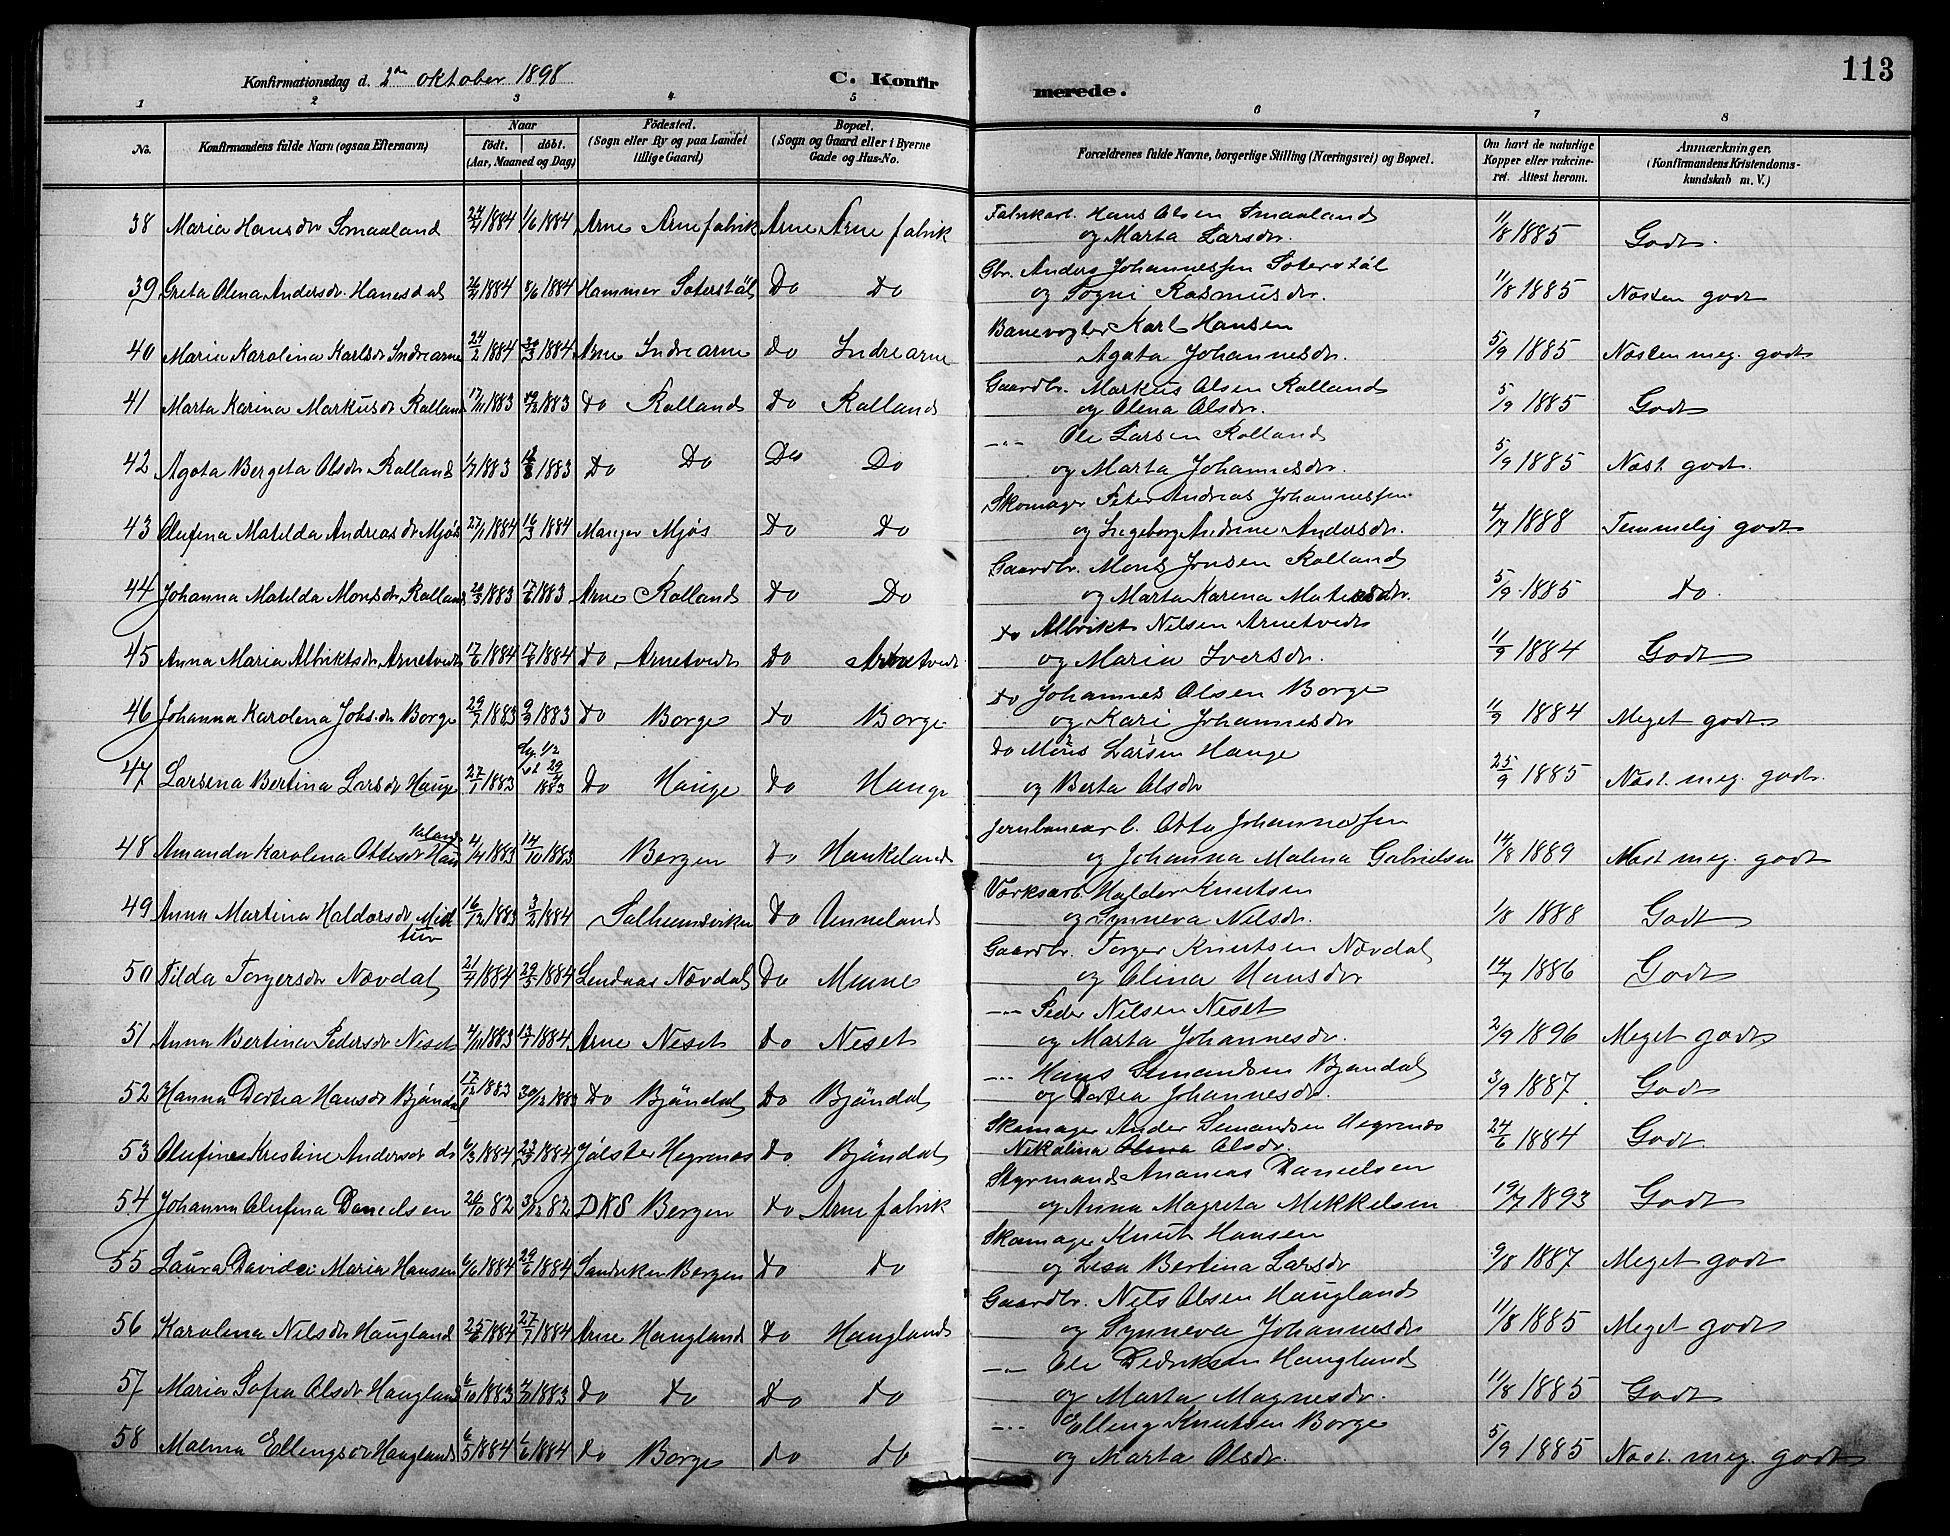 113
Konfirmationsdag d. 2den oktober 1898 C. Konfirmerede.
1 2 3 4 5 6 7 8
No. Konfirmandens fulde Navn (ogsaa Efternavn) Naar født. døbt. (Aar, Maaned og Dag) Fødested. (Sogn eller By og paa Landet tillige Gaard) Bopæl. (Sogn og Gaard eller i Byerne Gade og Hus-No. Forældrenes fulde Navne, borgerlige Stilling (Næringsvei) og Bopæl. Om havt de naturlige Kopper eller vaccineret. Attest herom. Anmærkninger. (Konfirmandens Kristendomskundskab m. V.)
38 Maria Hansdr Smaaland 1884 1/6 1884 Arne Arnefabrik Arne Arne fabrik Fabrikarb. Hans Olsen Smaaland
og Marta Larsdr. 11/8 1885 Godt.
39 Greta Olena Andersdr. Hanesdal 1884 8/6 1884 Hammer Soterstøl Do Do Gbr. Anders Johannessen Soterstøl
og Sogni Rasmusdr. 11/8 1885 Næsten godt
40 Maria Karolina Karlsdr Indrearne 24/2 1884 30/3 1884 Arne Indrearne Do Indrearne Banevogter Karl Hansen
Agata Johannesdr. 5/9 1885 Næsten meg. godt
41 Marta Karina Markusdr Rolland 17/11 1883 1883 Do Rolland Do Rolland Gaardbr. Markus Olsen Rolland
og Olena Olsdr. 5/9 1885 Godt
42 Agota Bergeta Olsdr Rolland 1/7 1883 1883 Do Do Do Do -"- Ole Larsen Rolland
og Marta Johannesdr. 5/9 1885 Næst. godt.
43 Olufina Matilda Andreasdr Mjøs 27/1 1884 16/3 1884 Manger Mjøs Do Do Skomager Peter Andreas Johannessen
og Ingeborg Andrine Andersdr. 4/7 1888 Temmelig godt.
44 Johanna Matilda Monsdr. Rolland 1883 17/6 1883 Arne Rolland Do Do Gaardbr. Mons Jonsen Rolland
og Marta Karina Mateasdr. 5/9 1885 do.
45 Anna Maria Albriktsdr. Arnetvedt 17/6 1884 17/8 1884 Do Arnetvedt Do Arnetvedt do Albrikt Nilsen Arnetvedt
og Maria Iversdr. 11/9 1884 Godt
46 Johanna Karolina Johs.dr Borge 29/7 1883 9/9 1883 Do Borge Do Borge do Johannes Olsen Borge
og Kari Johannesdr 11/9 1884 Meget godt.
47 Larsena Bertina Larsdr Hauge 27/7 1883 1883 Do Hauge Do Hauge do Mons Larsen Hauge
og Berta Olsdr 25/9 1885 Næst. meg. godt.
48 Amanda Karolina Ottesdr Haukeland 4/4 1883 14/10 1883 Bergen Do Haukeland Jernbanearb. Otto Johannessen
og Johanna Malena Gabrielsen 14/8 1889 Næst meg. godt
49 Anna Martina Haldorsdr Midttun 16/12 1883 3/2 1884 Solheimsviken Do Unneland Værksarb. Haldor Knutsen
og Synneva Nilsdr. 1/8 1888 Godt
50 Tilda Torgersdr Nævdal 21/4 1884 29/5 1884 Lindaas Nævdal Do Mune Gaardbr. Torger Knutsen Nævdal
og Olina Hansdr 14/7 1886 Godt
51 Anna Bertina Pedersdr Neset 4/11 1883 13/1 1884 Arne Neset Do Neset -"- Peder Nilsen Neset
og Marta Johannesdr. 2/9 1896 Meget godt
52 Hanna Dortea Hansdr Bjøndal 17/12 1883 30/12 1883 Do Bjøndal Do Bjøndal -"- Hans Simandsen Bjøndal
og Dortea Johannesdr. 3/9 1887 Godt
53 Olufine Kristine Andersdr do 6/3 1884 23/3 1884 Jølster Hegrenæs Do Bjøndal Skomager Ander Simandsen Hegrenæs
Nikolina Olena Olsdr. 24/6 1884 Godt
54 Johanna Olufina Danielsen 82 3/12 82 DKS Bergen do Arne fabrik Styrmand Ananias Danielsen
og Anna Magreta Mikkelsen 19/7 1893 Godt
55 Laura Davida Maria Hansen 6/6 1884 29/6 1884 Sandviken Bergen Do Do Skomager Knut Hansen
og Lisa Bertina Larsdr 9/8 1887 Meget godt
56 Karolina Nilsdr Haugland 25/6 1884 27/7 1884 Arne Haugland Do Haugland Gaardbr. Nils Olsen Haugland
og Synneva Johannesdr 11/8 1885 Meget godt
57 Maria Sofia Olsdr Haugland 6/10 1883 1883 Do Do Do Do -"- Ole Didriksen Haugland
og Marta Magnesdr. 11/8 1885 Godt
58 Malina Ellingsdr Haugland 6/5 1884 1/6 1884 Do Borge Do Do -"- Elling Knutsen Borge
og Marta Olsdr. 5/9 1885 Næst. meg. godt